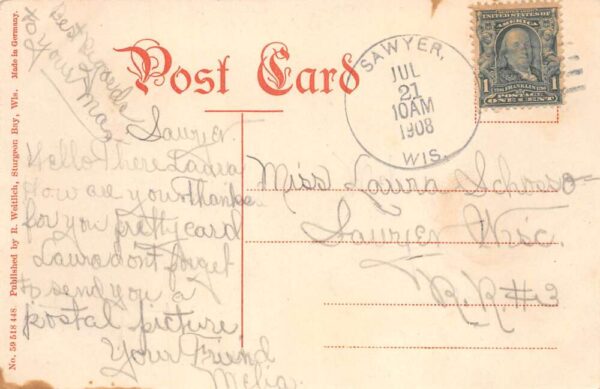 Post Card
SAWYER,
JUL
21
10AM
1908
WIS.
UNITED STATES OF AMERICA
1 1
FRANKLIN
POSTAGE
ONE CENT
best regards
to your Ma
Sawyer
Hello There Laura
How are you. Thanks
for you pretty card
Laura dont forget
to send you a
postal picture
Your Friend
Melia.
Miss Laura
Sawyer Wisc.
R.R.#3
No. 59 518 448. Published by R. Weitlich, Sturgeon Bay, Wis. Made in Germany.